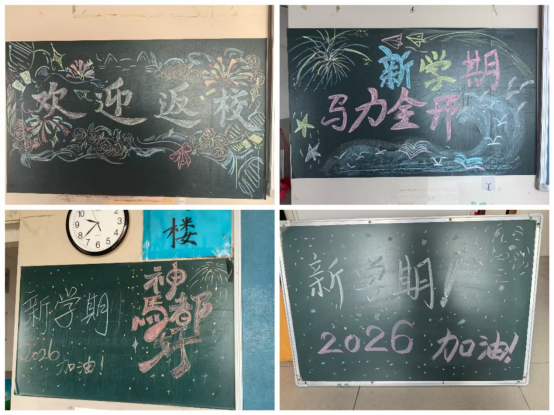 欢迎返校
新学期
马力全开
楼
新学期
2026
加油!
神
馬都
新学期!
2026 加油!